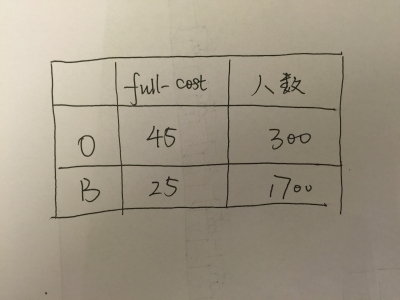 full-cost 人数
O 45 300
B 25 1700